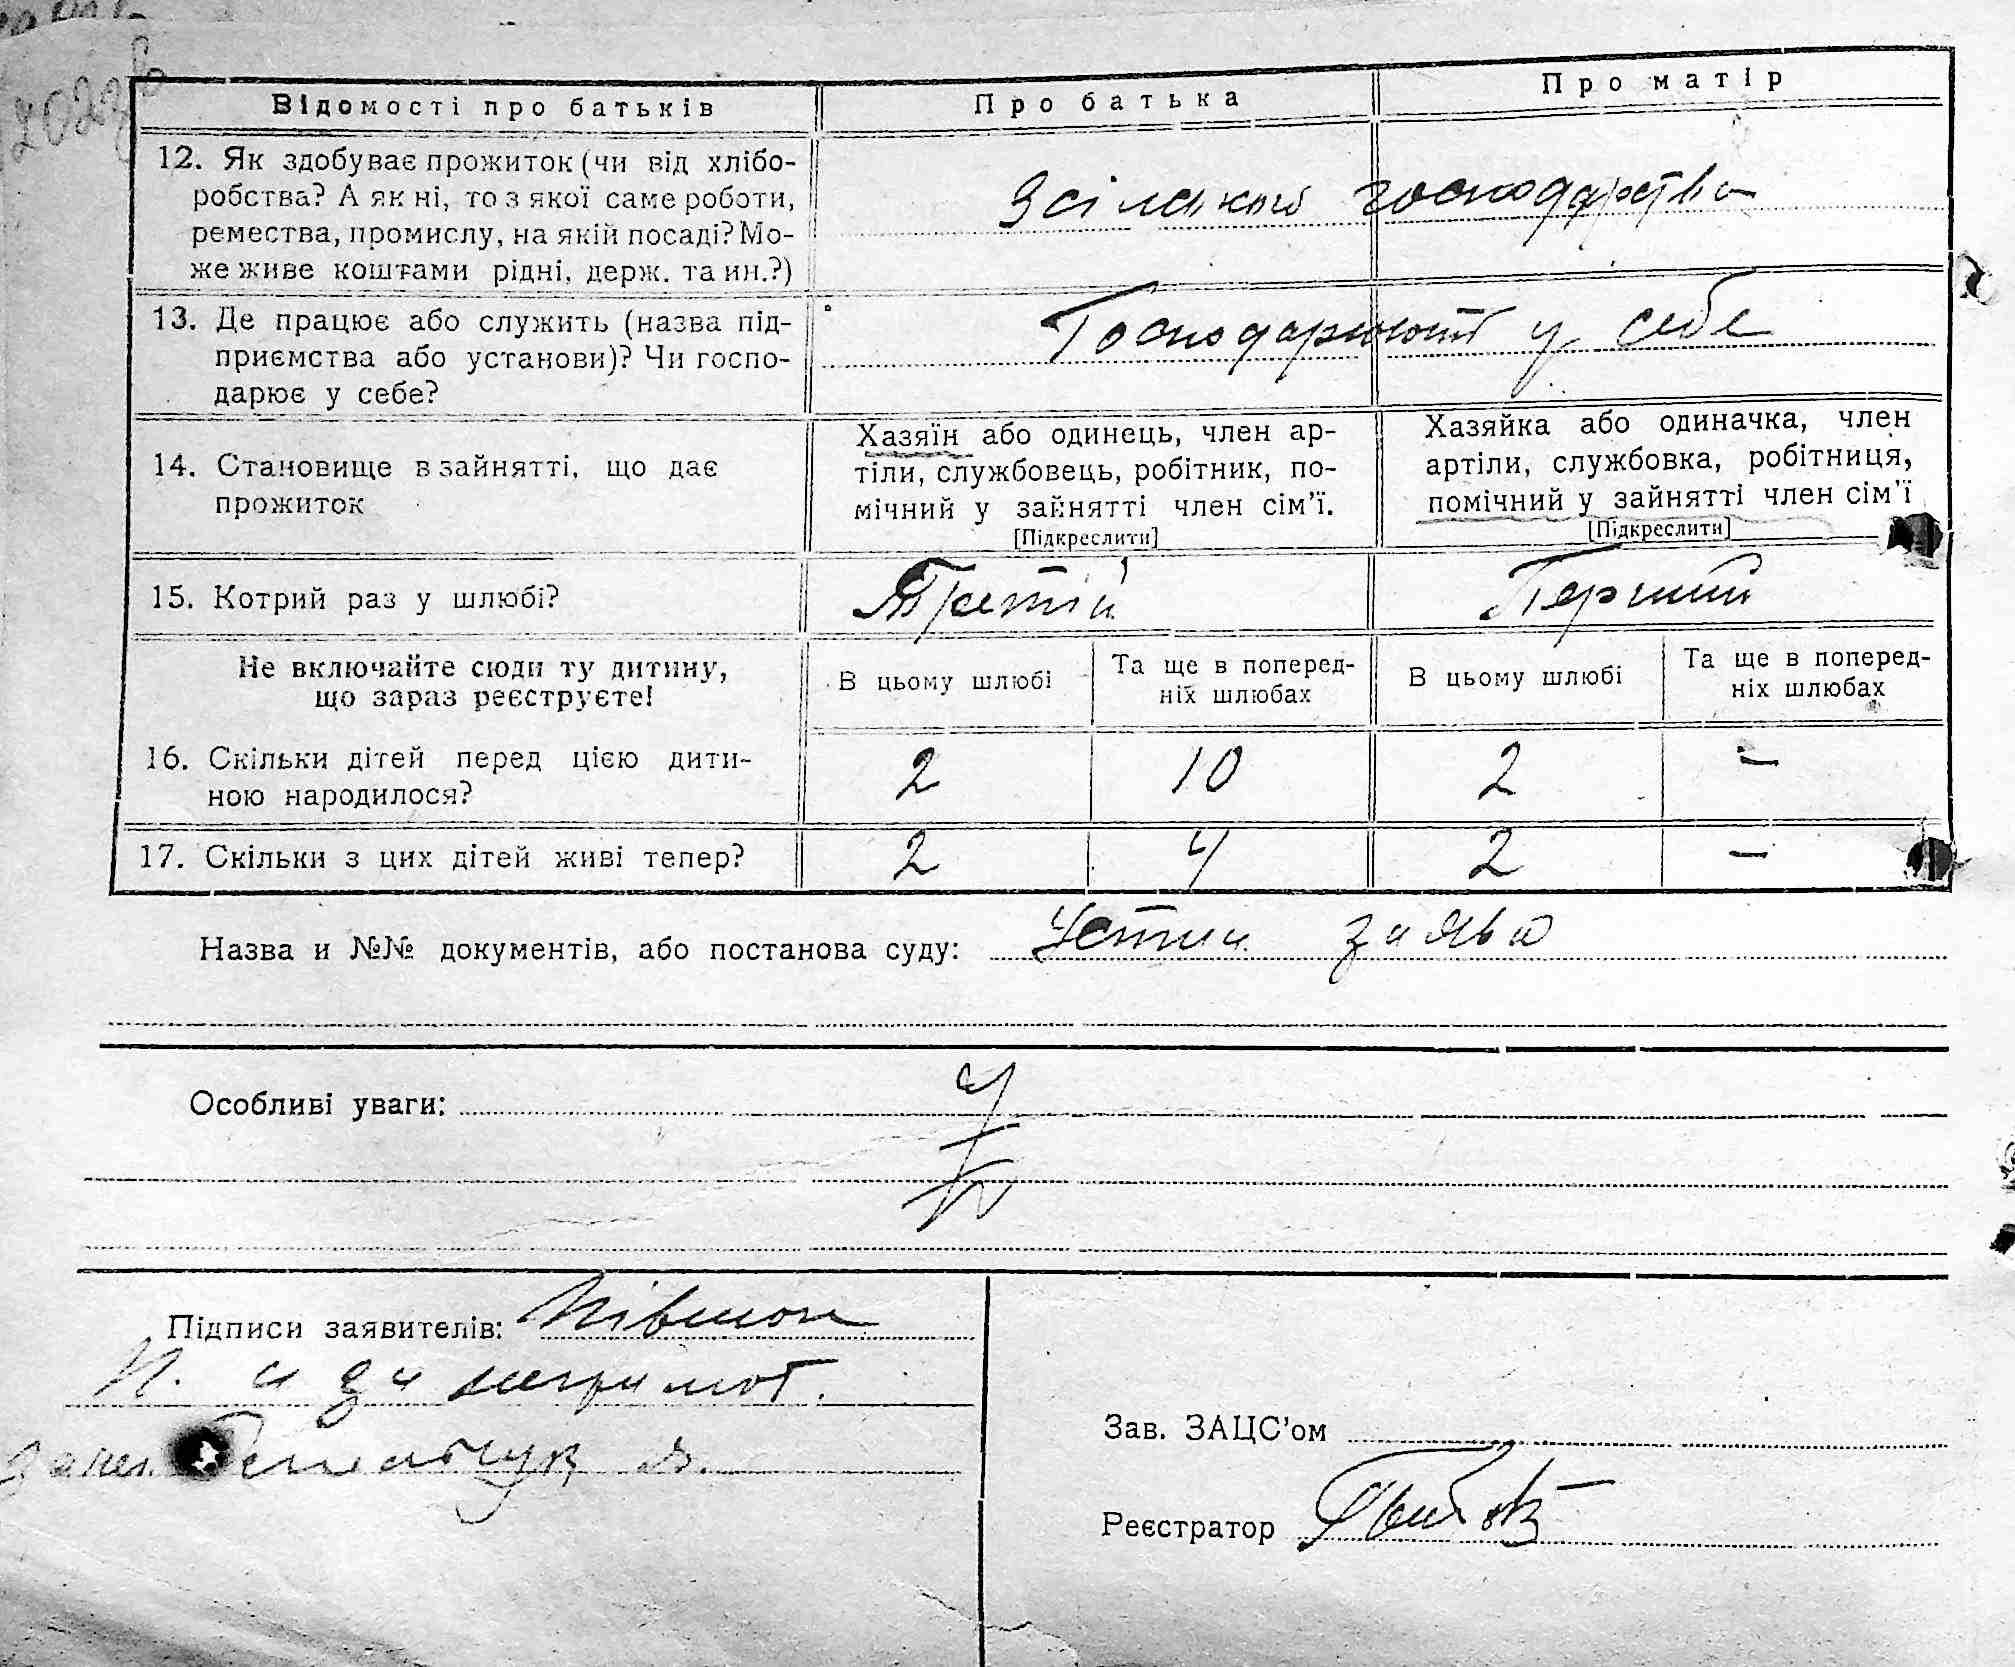 Відомості про батьків
Про батька
Про матір
12. Як здобуває прожиток (чи від хлібо-
робства? А як ні, то з якої саме роботи,
ремества, промислу, на якій посаді? Мо-
же живе коштами рідні, держ. та ин.?)
Зсільського господарства
13. Де працює або служить (назва під-
приємства або установи)? Чи госпо-
дарює у себе?
Господарюють у себе
14. Становище в зайнятті, що дає
прожиток
Хазяїн або одинець, член ар-
тіли, службовець, робітник, по-
мічний у зайнятті член сім'ї.
[Підкреслити]
Хазяйка або одиначка, член
артіли, службовка, робітниця,
помічний у зайнятті член сім'ї
[Підкреслити]
15. Котрий раз у шлюбі?
Третій
Перший
Не включайте сюди ту дитину,
що зараз реєструєте!
В цьому шлюбі
Та ще в поперед-
ніх шлюбах
В цьому шлюбі
Та ще в поперед-
ніх шлюбах
16. Скільки дітей перед цією дити-
ною народилося?
2
10
2
–
17. Скільки з цих дітей живі тепер?
2
4
2
–
Назва и №№ документів, або постанова суду: Устна заява
Особливі уваги:
Підписи заявителів: Півторак
Н. а за неграмот.
Зав. ЗАЦС'ом
Реєстратор